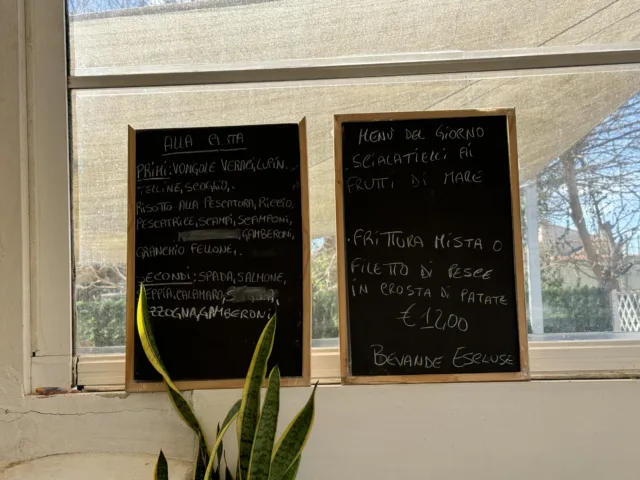 ALLA CARTA
PRIMI: VONGOLE VERACI, LUPINI.
TELLINE, SCOGLIO,.
RISOTTO ALLA PESCATORA, RICCIO,
PESCATRICE, SCAMPI, SCAMPONI,
GAMBERONI,
GRANCHIO FELLONE,.
SECONDI: SPADA, SALMONE,
SEPPIA, CALAMARO,
GAMBERONI
MENÙ DEL GIORNO
.SCIALATIELLI AI
FRUTTI DI MARE
.FRITTURA MISTA O
FILETTO DI PESCE
IN CROSTA DI PATATE
€ 12,00
BEVANDE ESCLUSE